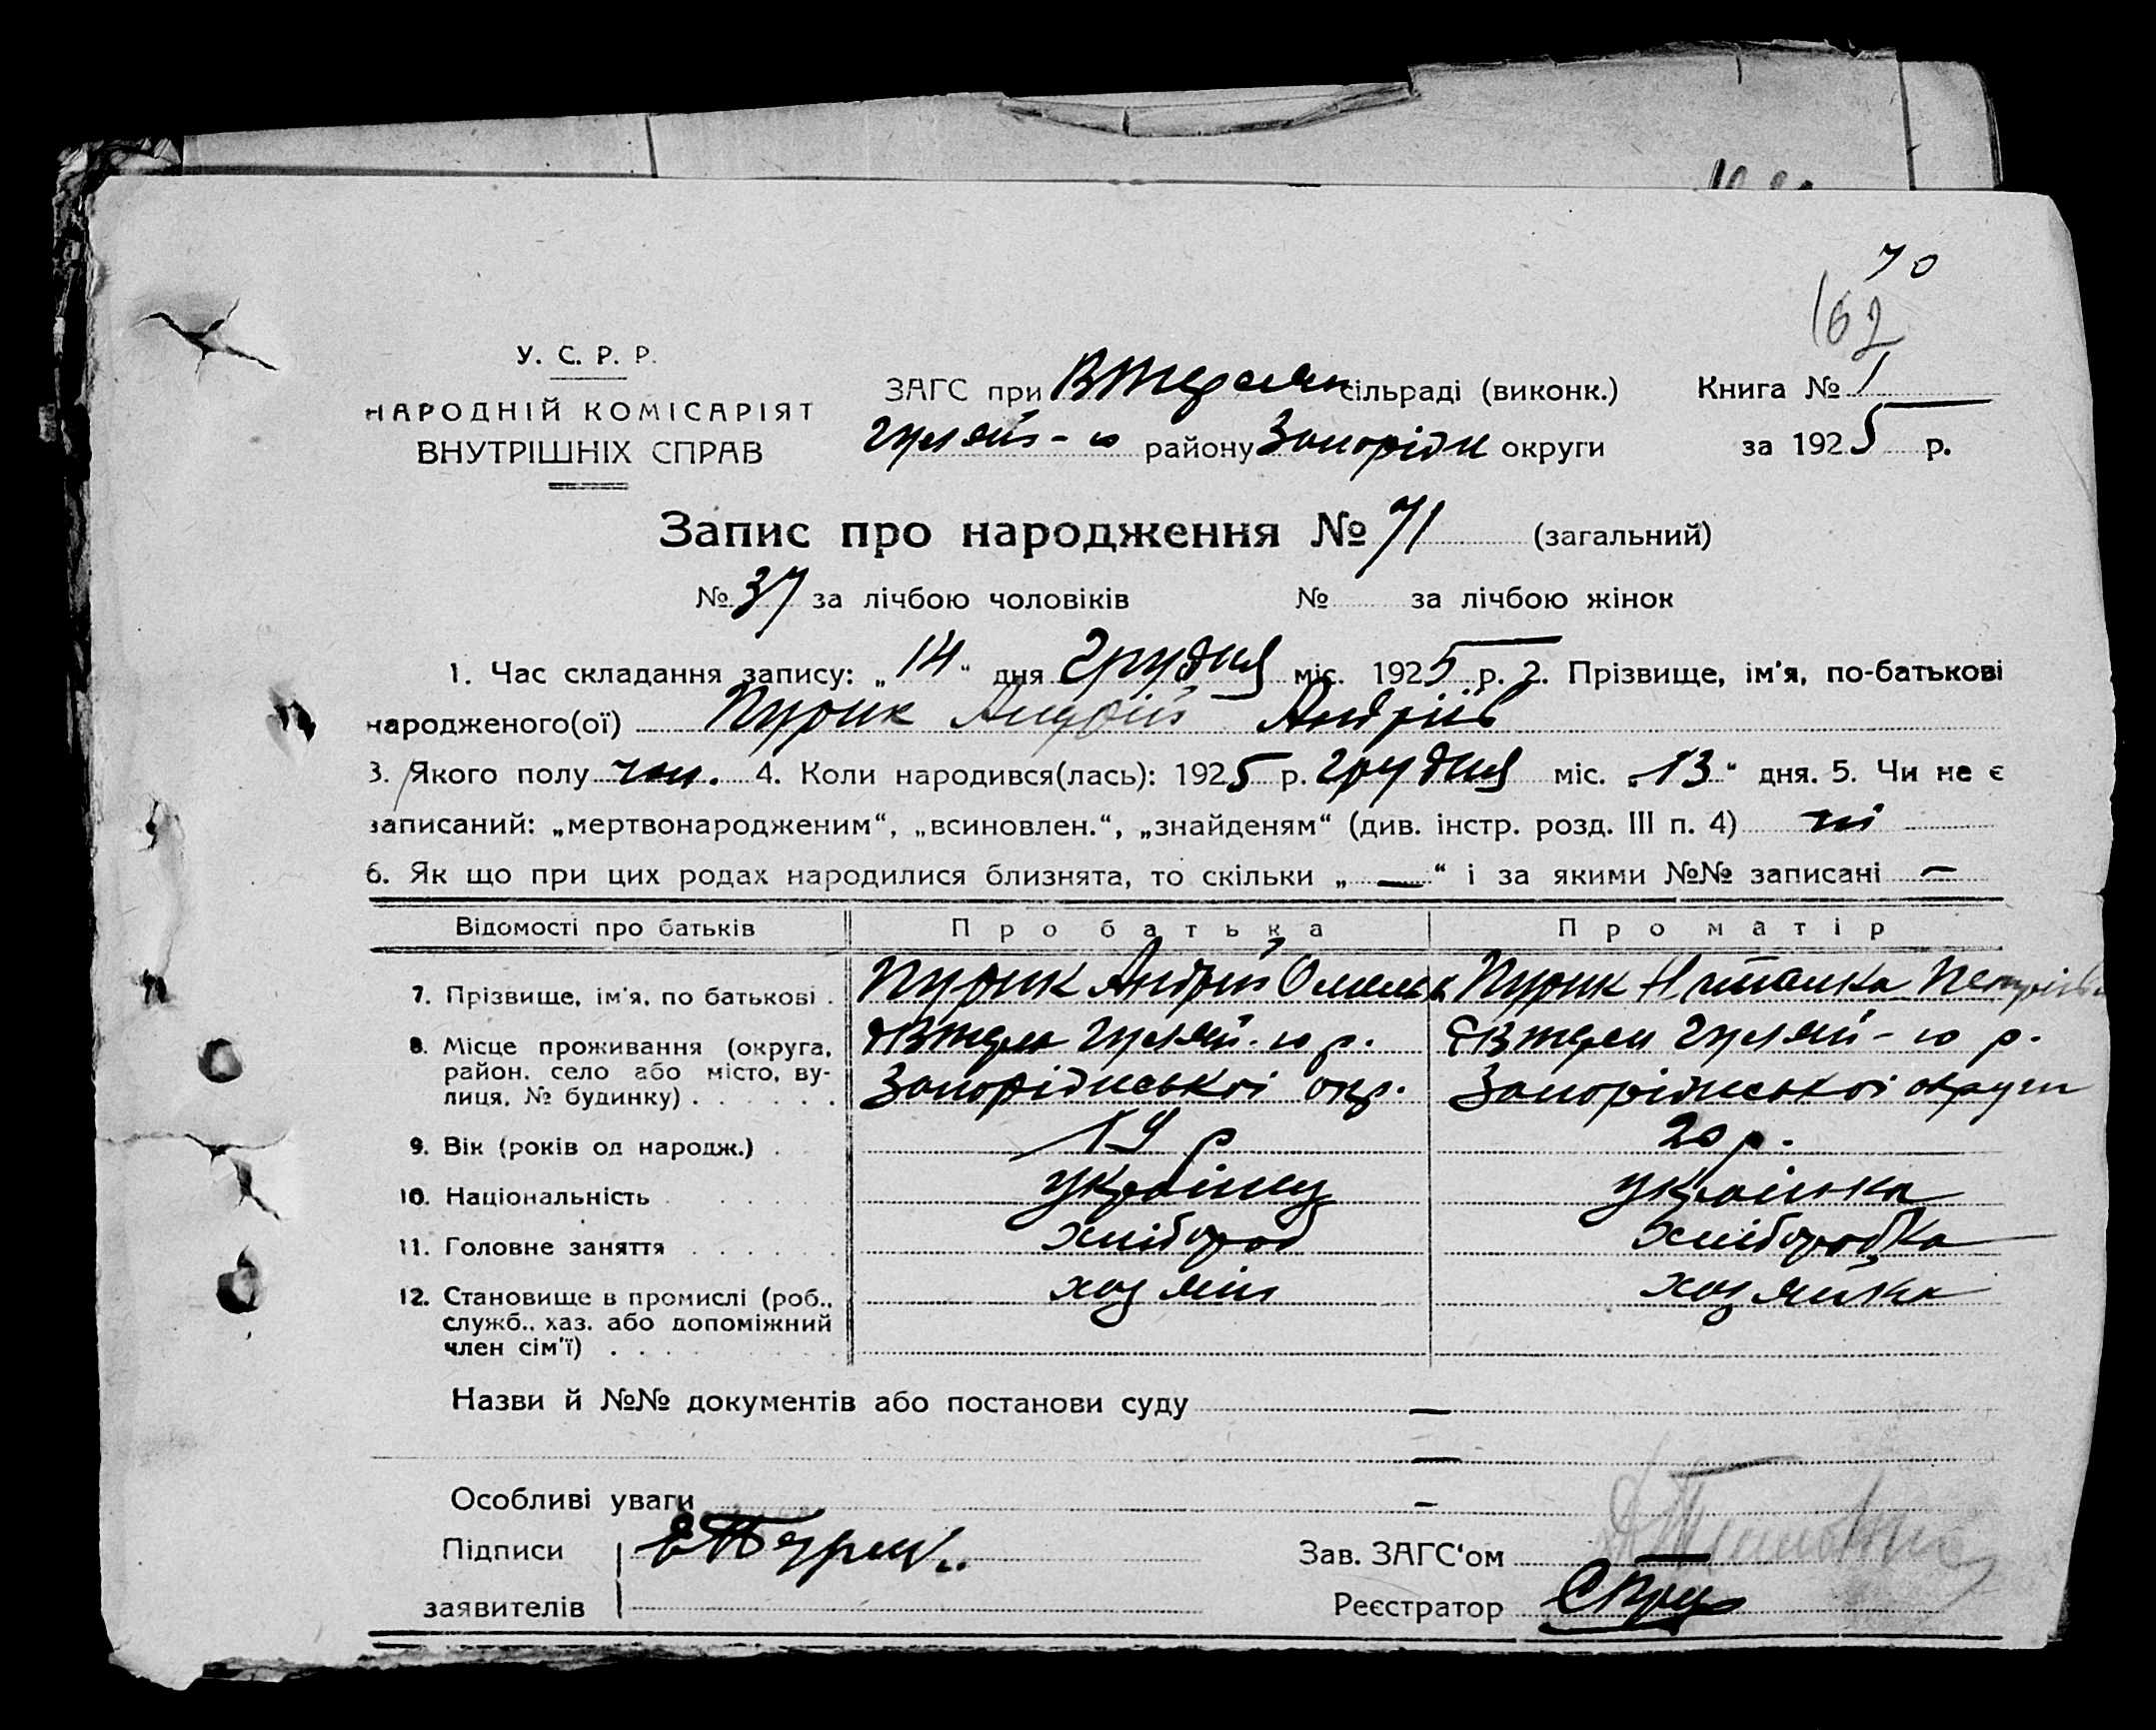 70
162
У. С. Р. Р.
НАРОДНІЙ КОМІСАРІЯТ
ВНУТРІШНІХ СПРАВ
ЗАГС при сільраді (виконк.) Книга № 1
Гуляй-п району Запоріжк округи за 1925 р.
Запис про народження № 71 (загальний)
№ 37 за лічбою чоловіків № за лічбою жінок
1. Час складання запису: „14“ дня Грудня міс. 1925 р. 2. Прізвище, ім'я, по-батькові
народженого(ої) Пурик Андрій Андріїв
3. Якого полу чол. 4. Коли народився(лась): 1925 р. грудня міс. „13“ дня. 5. Чи не є
записаний: „мертвонародженим“, „всиновлен.“, „знайденям“ (див. інстр. розд. III п. 4) ні
6. Як що при цих родах народилися близнята, то скільки „—“ і за якими №№ записані —
Відомості про батьків Про батька Про матір
7. Прізвище, ім'я, по батькові . Пурик Андрій Омельк Пурик Наталка Петрівна
8. Місце проживання (округа, Гуляй-п р. Гуляй-п р.
район, село або місто, ву- Запоріжської окр. Запоріжської округи
лиця, № будинку) . . . . . .
9. Вік (років од народж.) . 19 р 20 р.
10. Національність . . . . українц українка
11. Головне заняття . . . . . . хлібороб хліборобка
12. Становище в промислі (роб., хозяїн хозяйка
служб., хаз. або допоміжний
член сім'ї) . . . .
Назви й №№ документів або постанови суду —
—
Особливі уваги —
Підписи Зав. ЗАГС'ом
заявителів Реєстратор